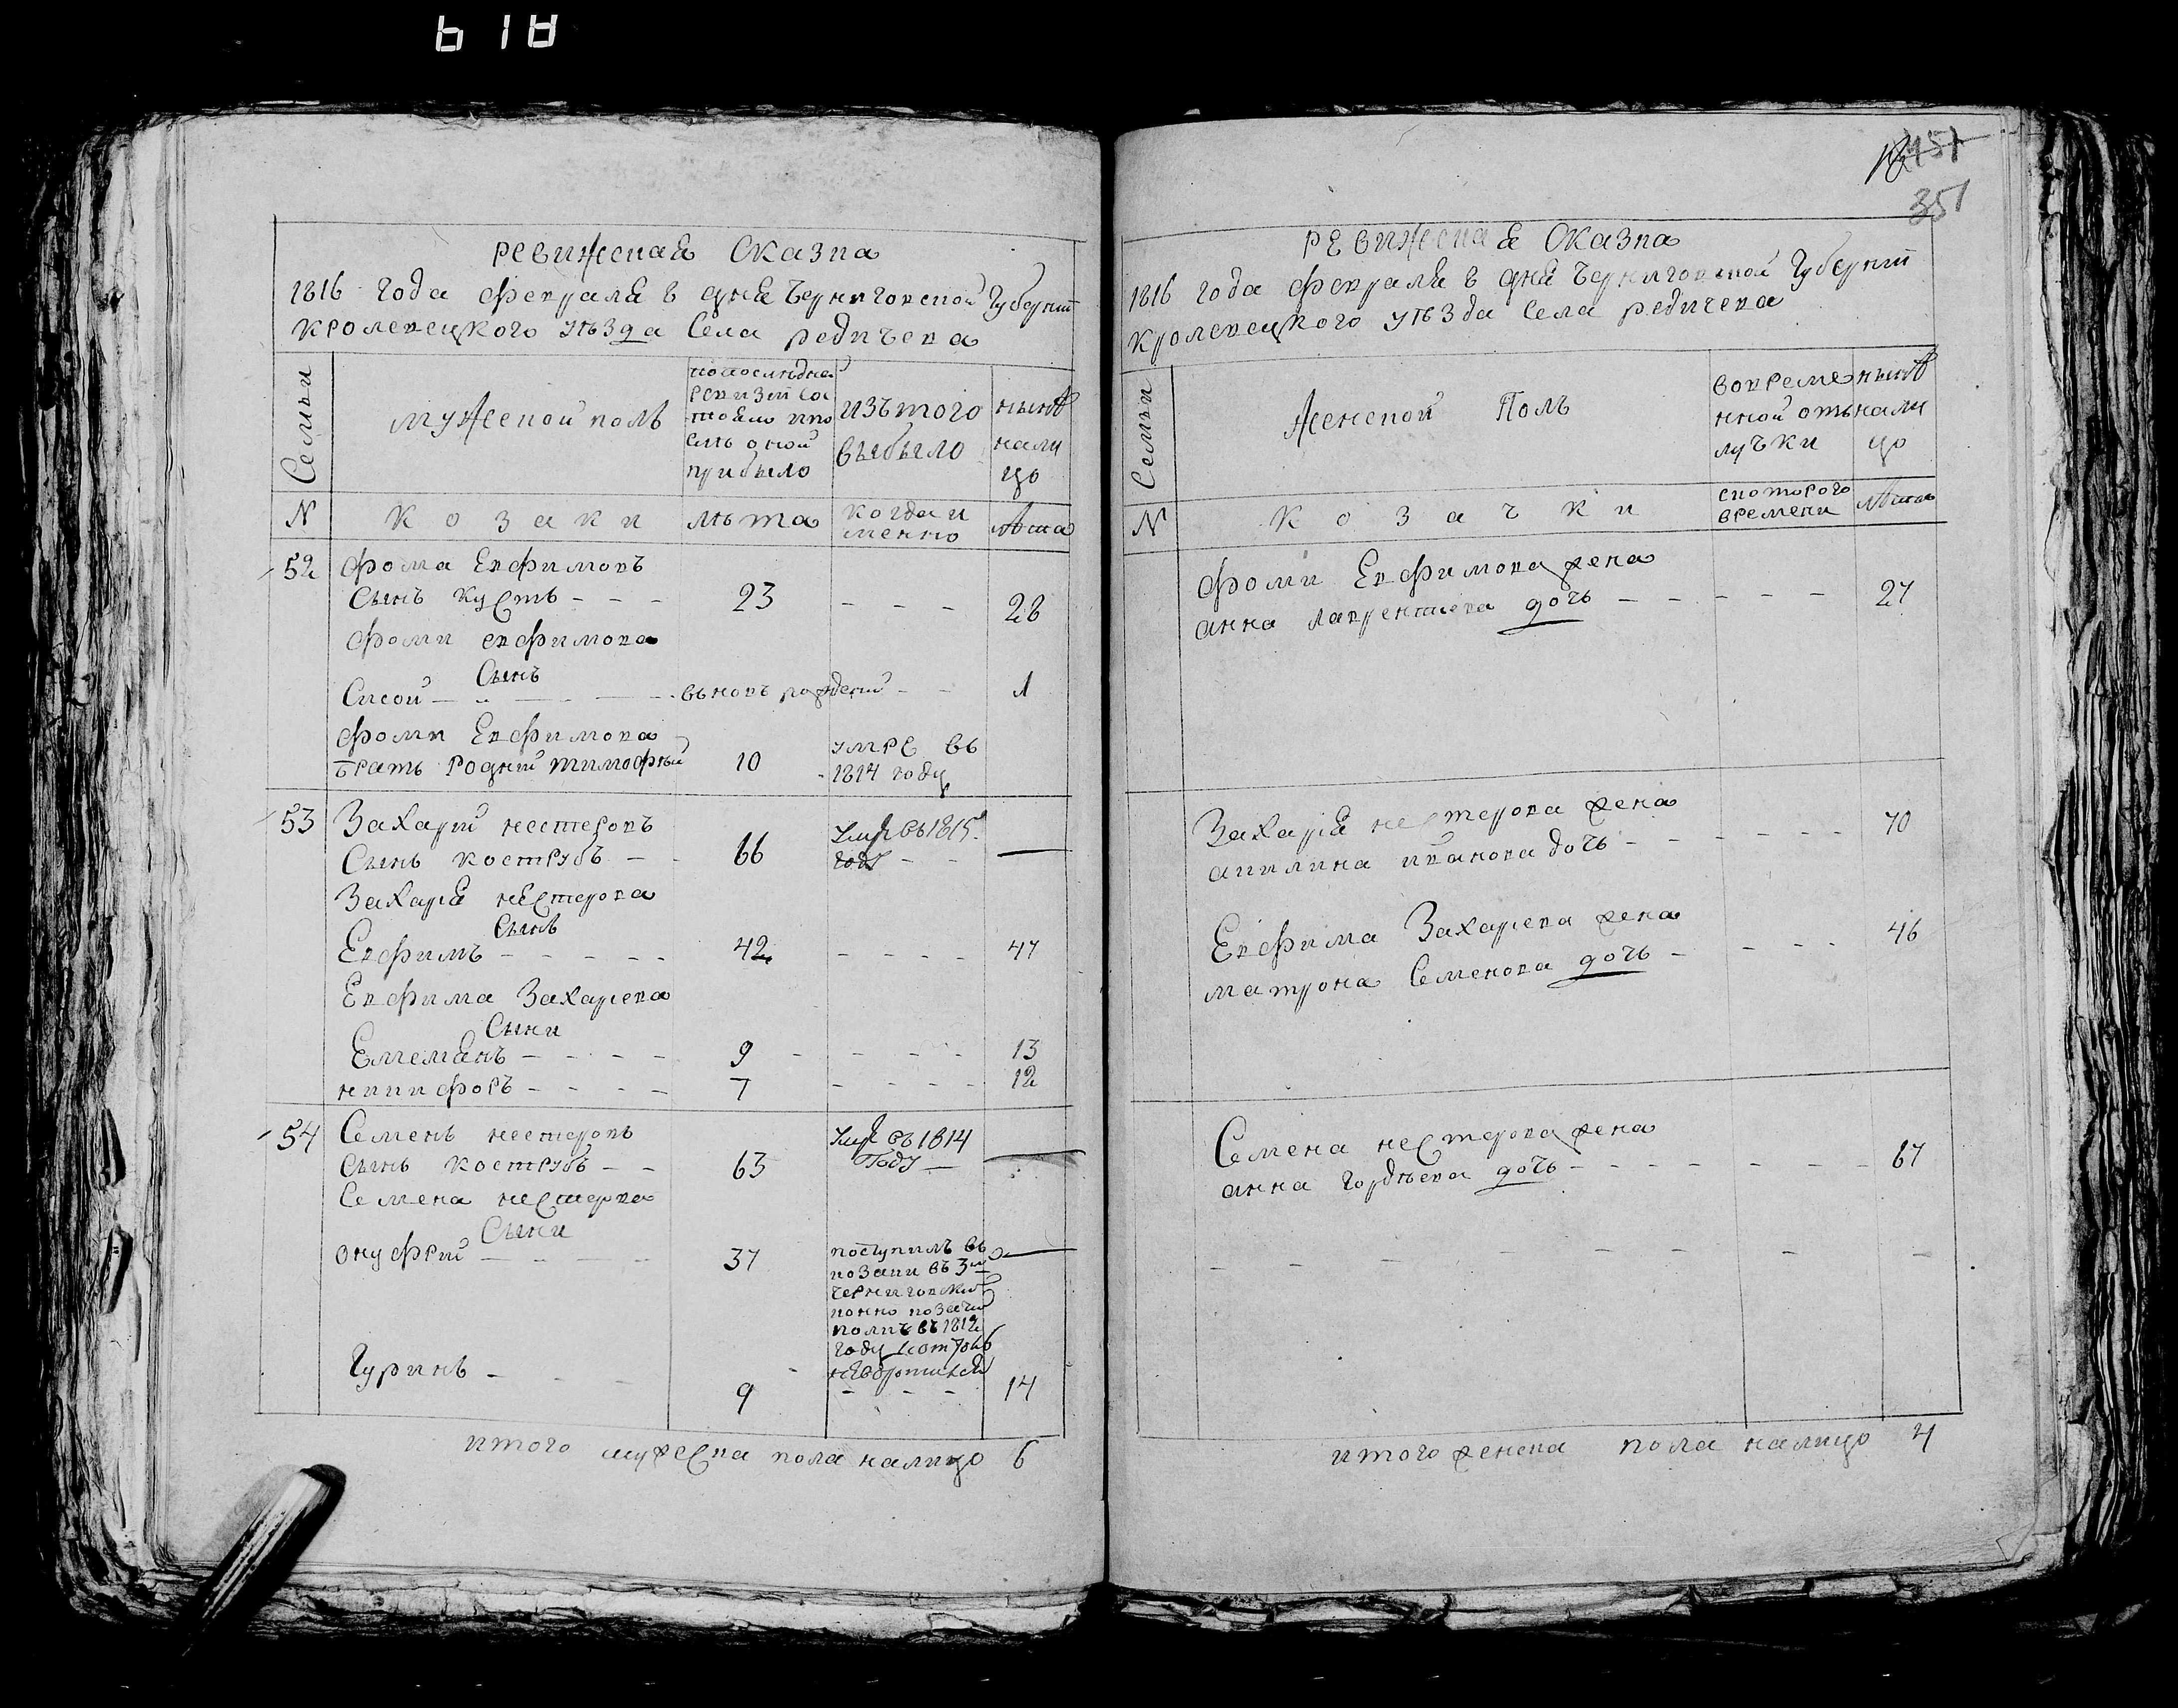 618
ревижская сказка
1816 года февраля в дня Черниговской Губернїи
кролевецкого уѣзда Села редичева
Семьи
мужеской полъ
попоследней
ревизїи сос
тояло ипо
слѣ оной
прибыло
изътого
выбыло
нынѣ
нали
цо
N
козаки
лѣта
когда и
менно
лѣта
52
фома Евфимовъ
Сынъ кустъ - - -
23
- - -
28
фоми евфимова
Сынъ
Сисой
вьновъ рожденїй
1
фоми Евфимова
братъ роднїй тимофѣй
10
умре въ
1814 году
53
Захарїй нестеровъ
Сынъ кострубъ - -
66
Умре въ 1815
году
Захарїя нестерова
Сынъ
Евфимъ - - - - -
42
- - - -
47
Евфима Захарїева
Сыни
Емелиянъ - - - -
9
- - - -
13
никифоръ - - - -
7
- - - -
12
54
Семенъ нестеровъ
сынъ кострубъ - -
63
Умре въ 1814
Году
Семена нестерова
Сыни
Онуфрїй
37
поступилъ въ
козаки въ 3й
черниговскїй
конно козачїй
полкъ въ 1812
году и оттоль
невозвратился
Гуринъ - - -
9
- - -
14
итого мужеска пола налицо 6
451
351
ревижская сказка
1816 года февраля в дня Черниговской Губернїи
кролевецкого уѣзда Села редичева
Семьи
женской Полъ
вовреме
нной отъ
лучки
нынѣ
нали
цо
N
козачки
скоторого
времени
лѣта
фоми Евфимова жена
анна лаврентиева дочь - - - - -
27
Захарїя нестерова жена
акилина иванова дочь - - - - - -
70
Евфима Захарїева жена
матрона Семенова дочь - - - -
46
Семена нестерова жена
анна гордѣева дочь - - - - - - -
67
- - - - - - - -
итого женска пола налицо 4